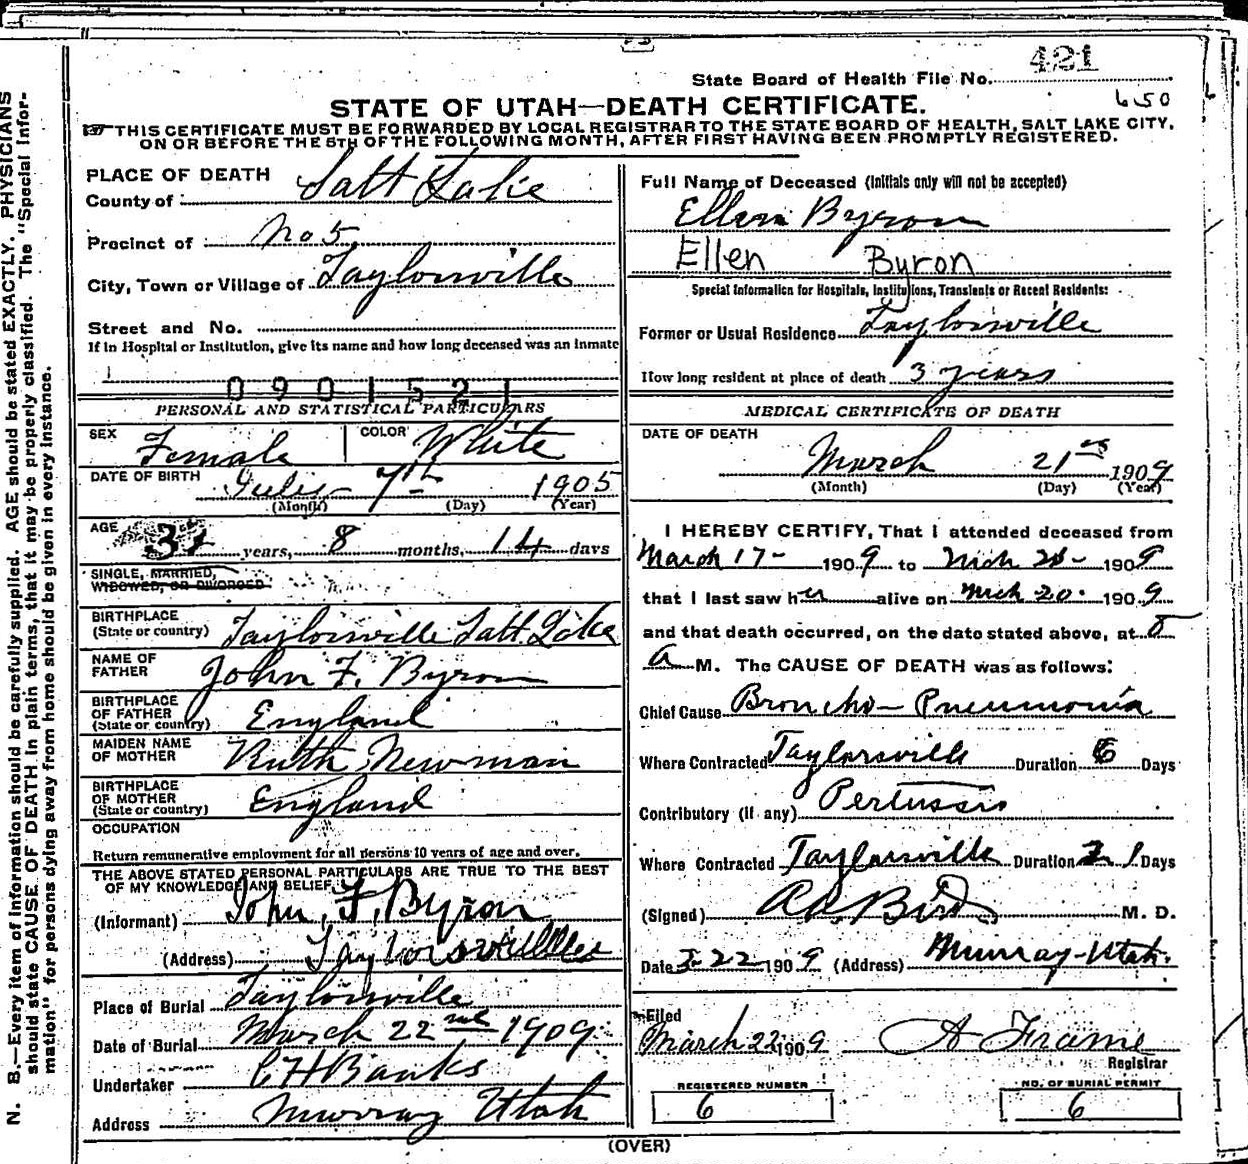 421
State Board of Health File No.
650
STATE OF UTAH—DEATH CERTIFICATE.
THIS CERTIFICATE MUST BE FORWARDED BY LOCAL REGISTRAR TO THE STATE BOARD OF HEALTH, SALT LAKE CITY,
ON OR BEFORE THE 5TH OF THE FOLLOWING MONTH, AFTER FIRST HAVING BEEN PROMPTLY REGISTERED.
N. B.—Every item of information should be carefully supplied. AGE should be stated EXACTLY. PHYSICIANS
should state CAUSE OF DEATH in plain terms, that it may be properly classified. The "Special Infor-
mation" for persons dying away from home should be given in every instance.
PLACE OF DEATH
County of Salt Lake
Precinct of No 5
City, Town or Village of Taylorsville
Street and No.
If in Hospital or Institution, give its name and how long deceased was an inmate
0901521
PERSONAL AND STATISTICAL PARTICULARS
SEX Female COLOR White
DATE OF BIRTH July 7th 1905
(Month) (Day) (Year)
AGE 3 years, 8 months, 14 days
SINGLE, MARRIED,
WIDOWED, OR DIVORCED
BIRTHPLACE
(State or country) Taylorsville Salt Lake
NAME OF
FATHER John F. Byron
BIRTHPLACE
OF FATHER
(State or country) England
MAIDEN NAME
OF MOTHER Ruth Newman
BIRTHPLACE
OF MOTHER
(State or country) England
OCCUPATION
Return remunerative employment for all persons 10 years of age and over.
THE ABOVE STATED PERSONAL PARTICULARS ARE TRUE TO THE BEST
OF MY KNOWLEDGE AND BELIEF
(Informant) John, F, Byron
(Address) Taylorsville
Place of Burial Taylorsville
Date of Burial March 22nd 1909.
Undertaker C H Banks
Address Murray Utah
Full Name of Deceased (Initials only will not be accepted)
Ellen Byron
Ellen Byron
Special Information for Hospitals, Institutions, Transients or Recent Residents:
Former or Usual Residence Taylorsville
How long resident at place of death 3 years
MEDICAL CERTIFICATE OF DEATH
DATE OF DEATH
March 21 1909
(Month) (Day) (Year)
I HEREBY CERTIFY, That I attended deceased from
March 17- 1909 to Mch 20- 1909
that I last saw her alive on Mch 20. 1909
and that death occurred, on the date stated above, at 8
A M. The CAUSE OF DEATH was as follows:
Chief Cause Broncho-Pneumonia
Where Contracted Taylorsville Duration 6 Days
Contributory (if any) Pertussis
Where Contracted Taylorsville Duration 21 Days
(Signed) Bird M. D.
Date 3-22 1909 (Address) Murray-Utah.
Filed
March 22 1909 A Frame
Registrar
REGISTERED NUMBER
6
NO. OF BURIAL PERMIT
6
(OVER)